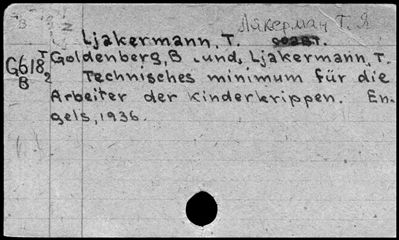 Лякерман Т. Я
Ljakermann, T.
G618 T Goldenberg, B. und, Ljakermann, T.
B 2 Technisches minimum für die
Arbeiter der Kinderkrippen. En-
gels, 1936.